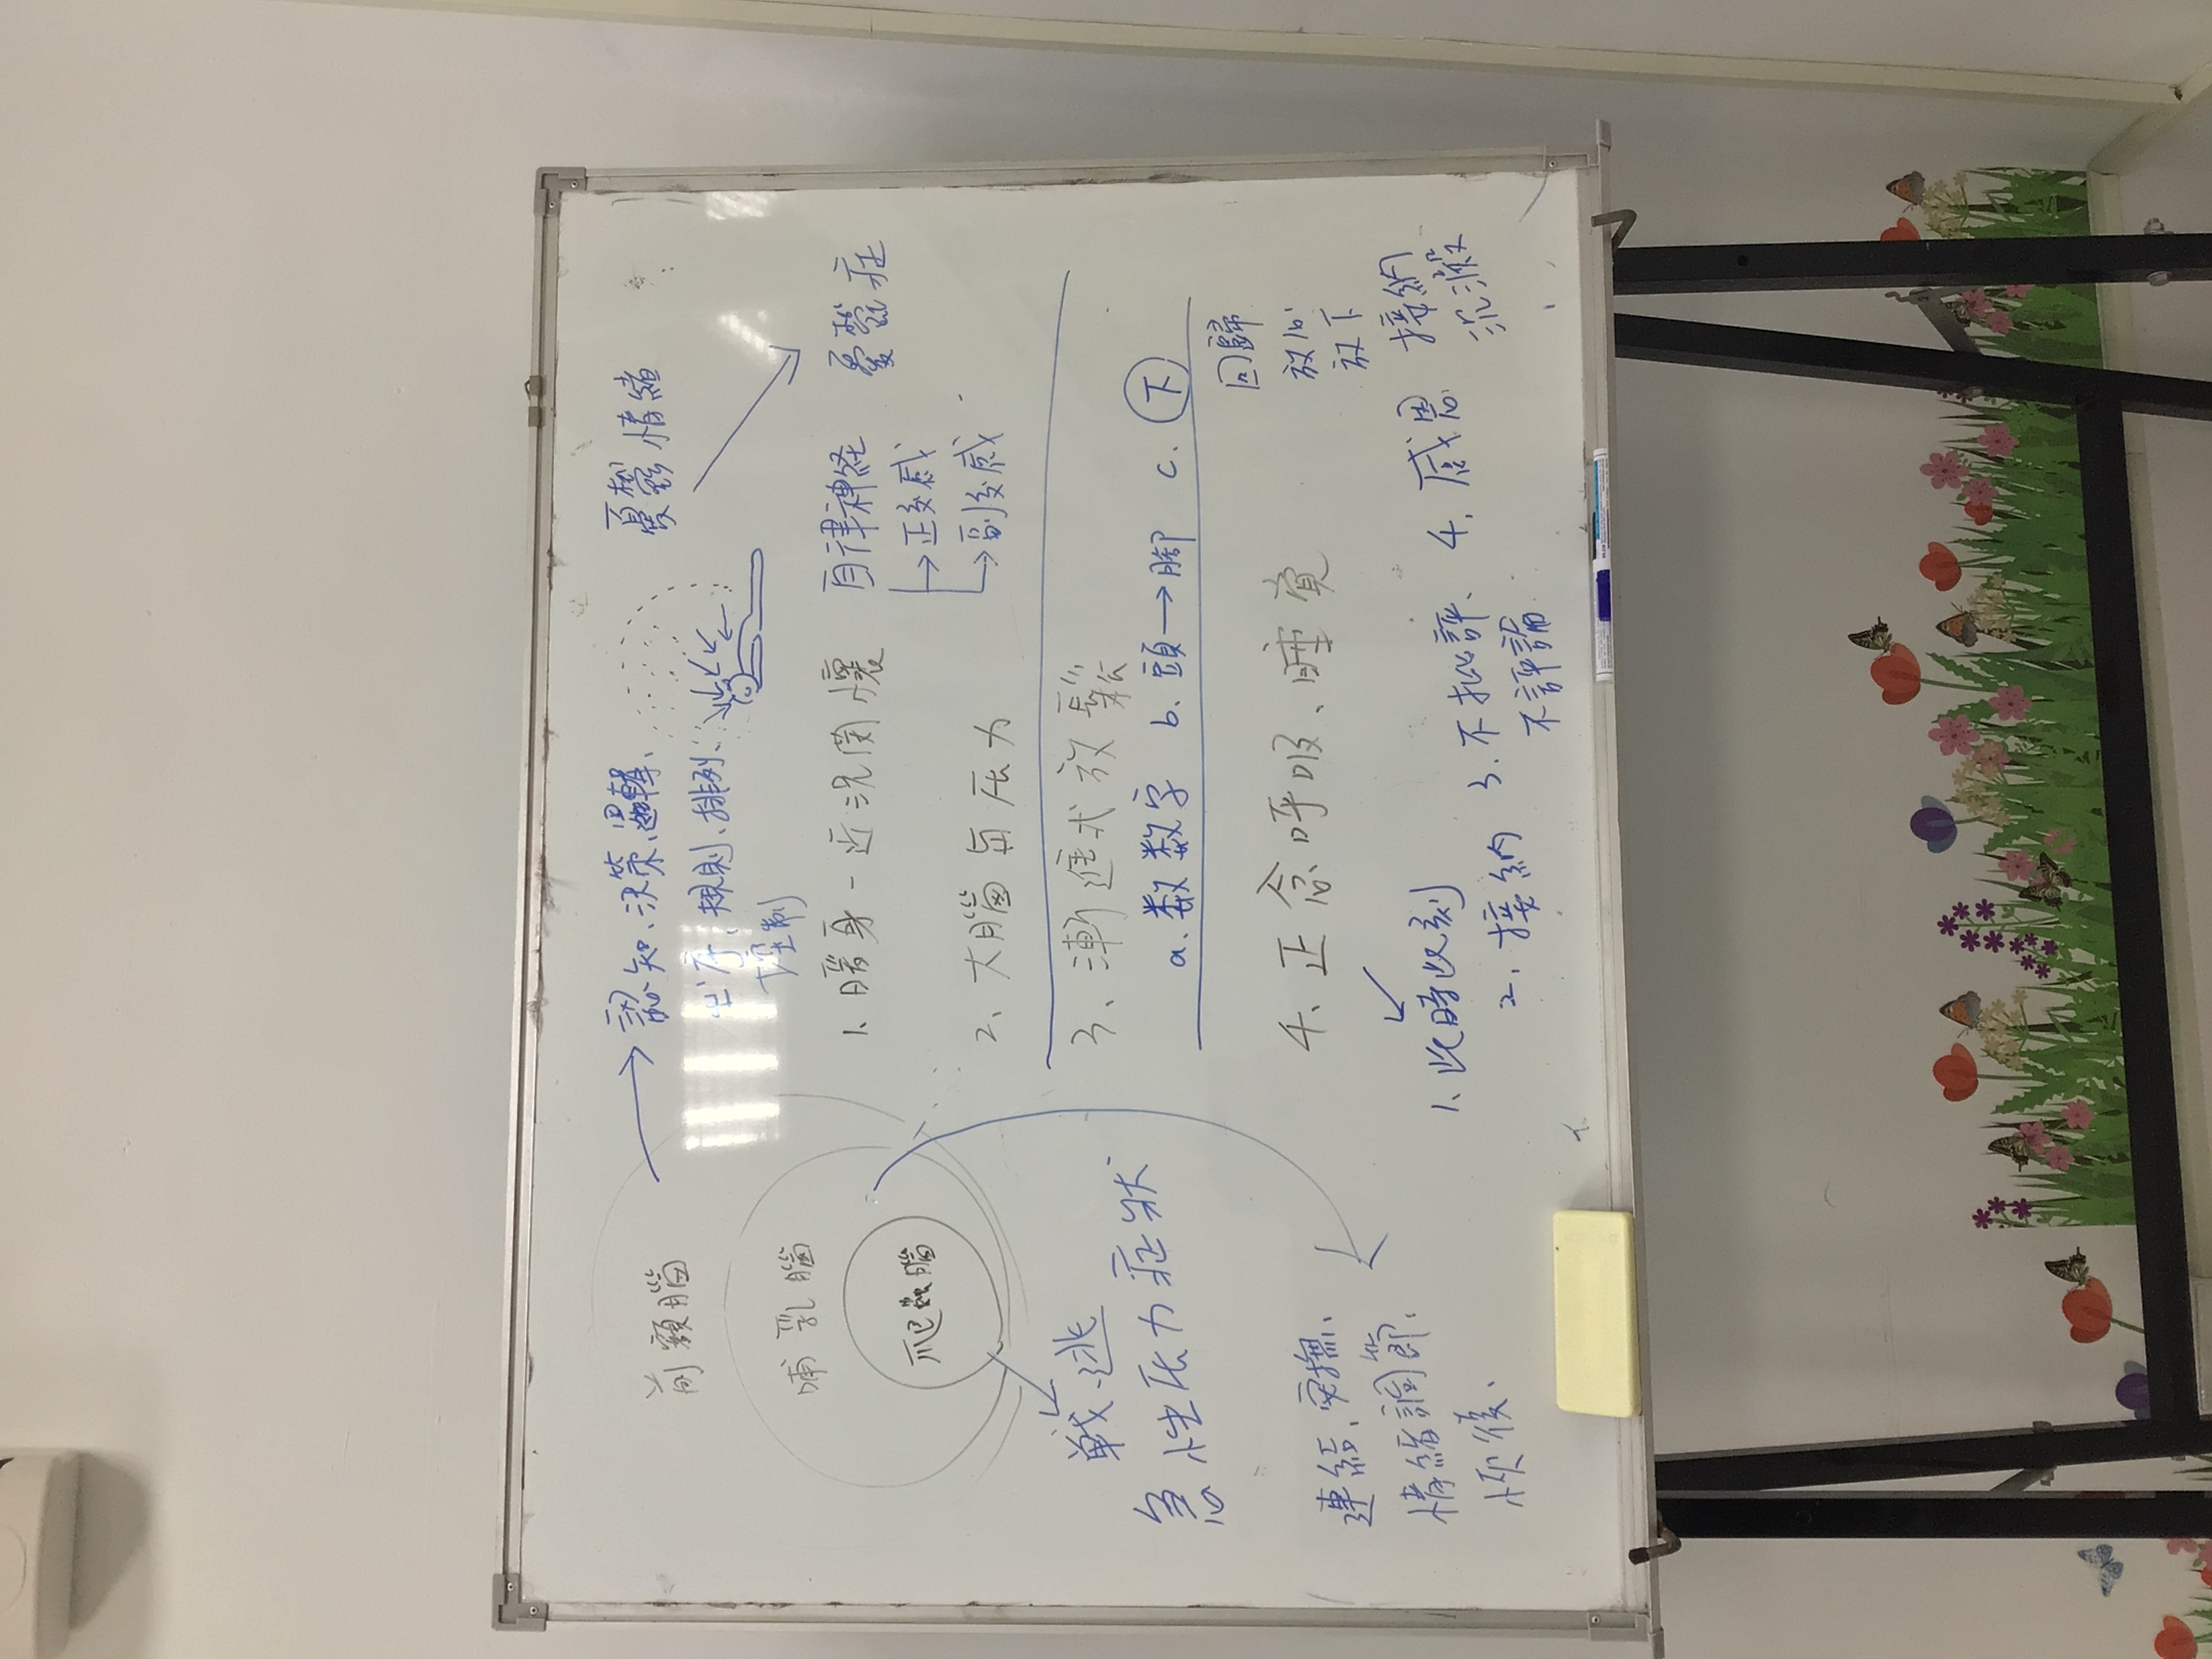 前額腦
哺乳腦
爬蟲腦
戰、逃
急性压力症狀
連結、安撫、
情緒調節、
恢復、
認知、決策、邏輯、
次序、規則、排列、
控制
憂鬱情緒
憂鬱症
1、暖身-近況関懷
自律神経
正交感
副交感
2、大腦與压力
3、漸進式放鬆
a、数数字 b、頭→腳 c、下
4、正念呼吸、睡覚
回歸
放心
放下
1、此時此刻
2、接納
3、不批評、
不評論
4、感恩
接納
沉澱